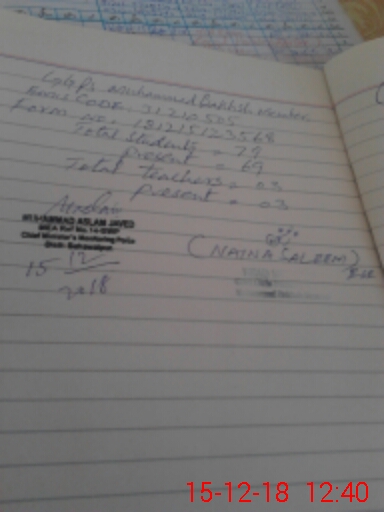 GGPS Muhammed Bakhsh Member
Emis Code. 31210505
Form No: 181215123568
Total Students = 79
Present = 69
Total teachers = 03
Present = 03
MUHAMMAD ASLAM JAVED
MEA Ref No.
Chief Minister's Monitoring Force
Distt: Bahawalpur
15 12 2018
(NAINA SALEEM)
15-12-18 12:40